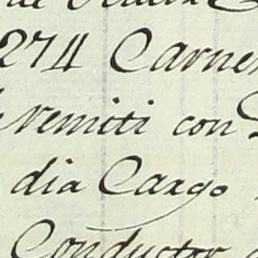 de
274 Carne
remiti con
dia Cargo
Conductor